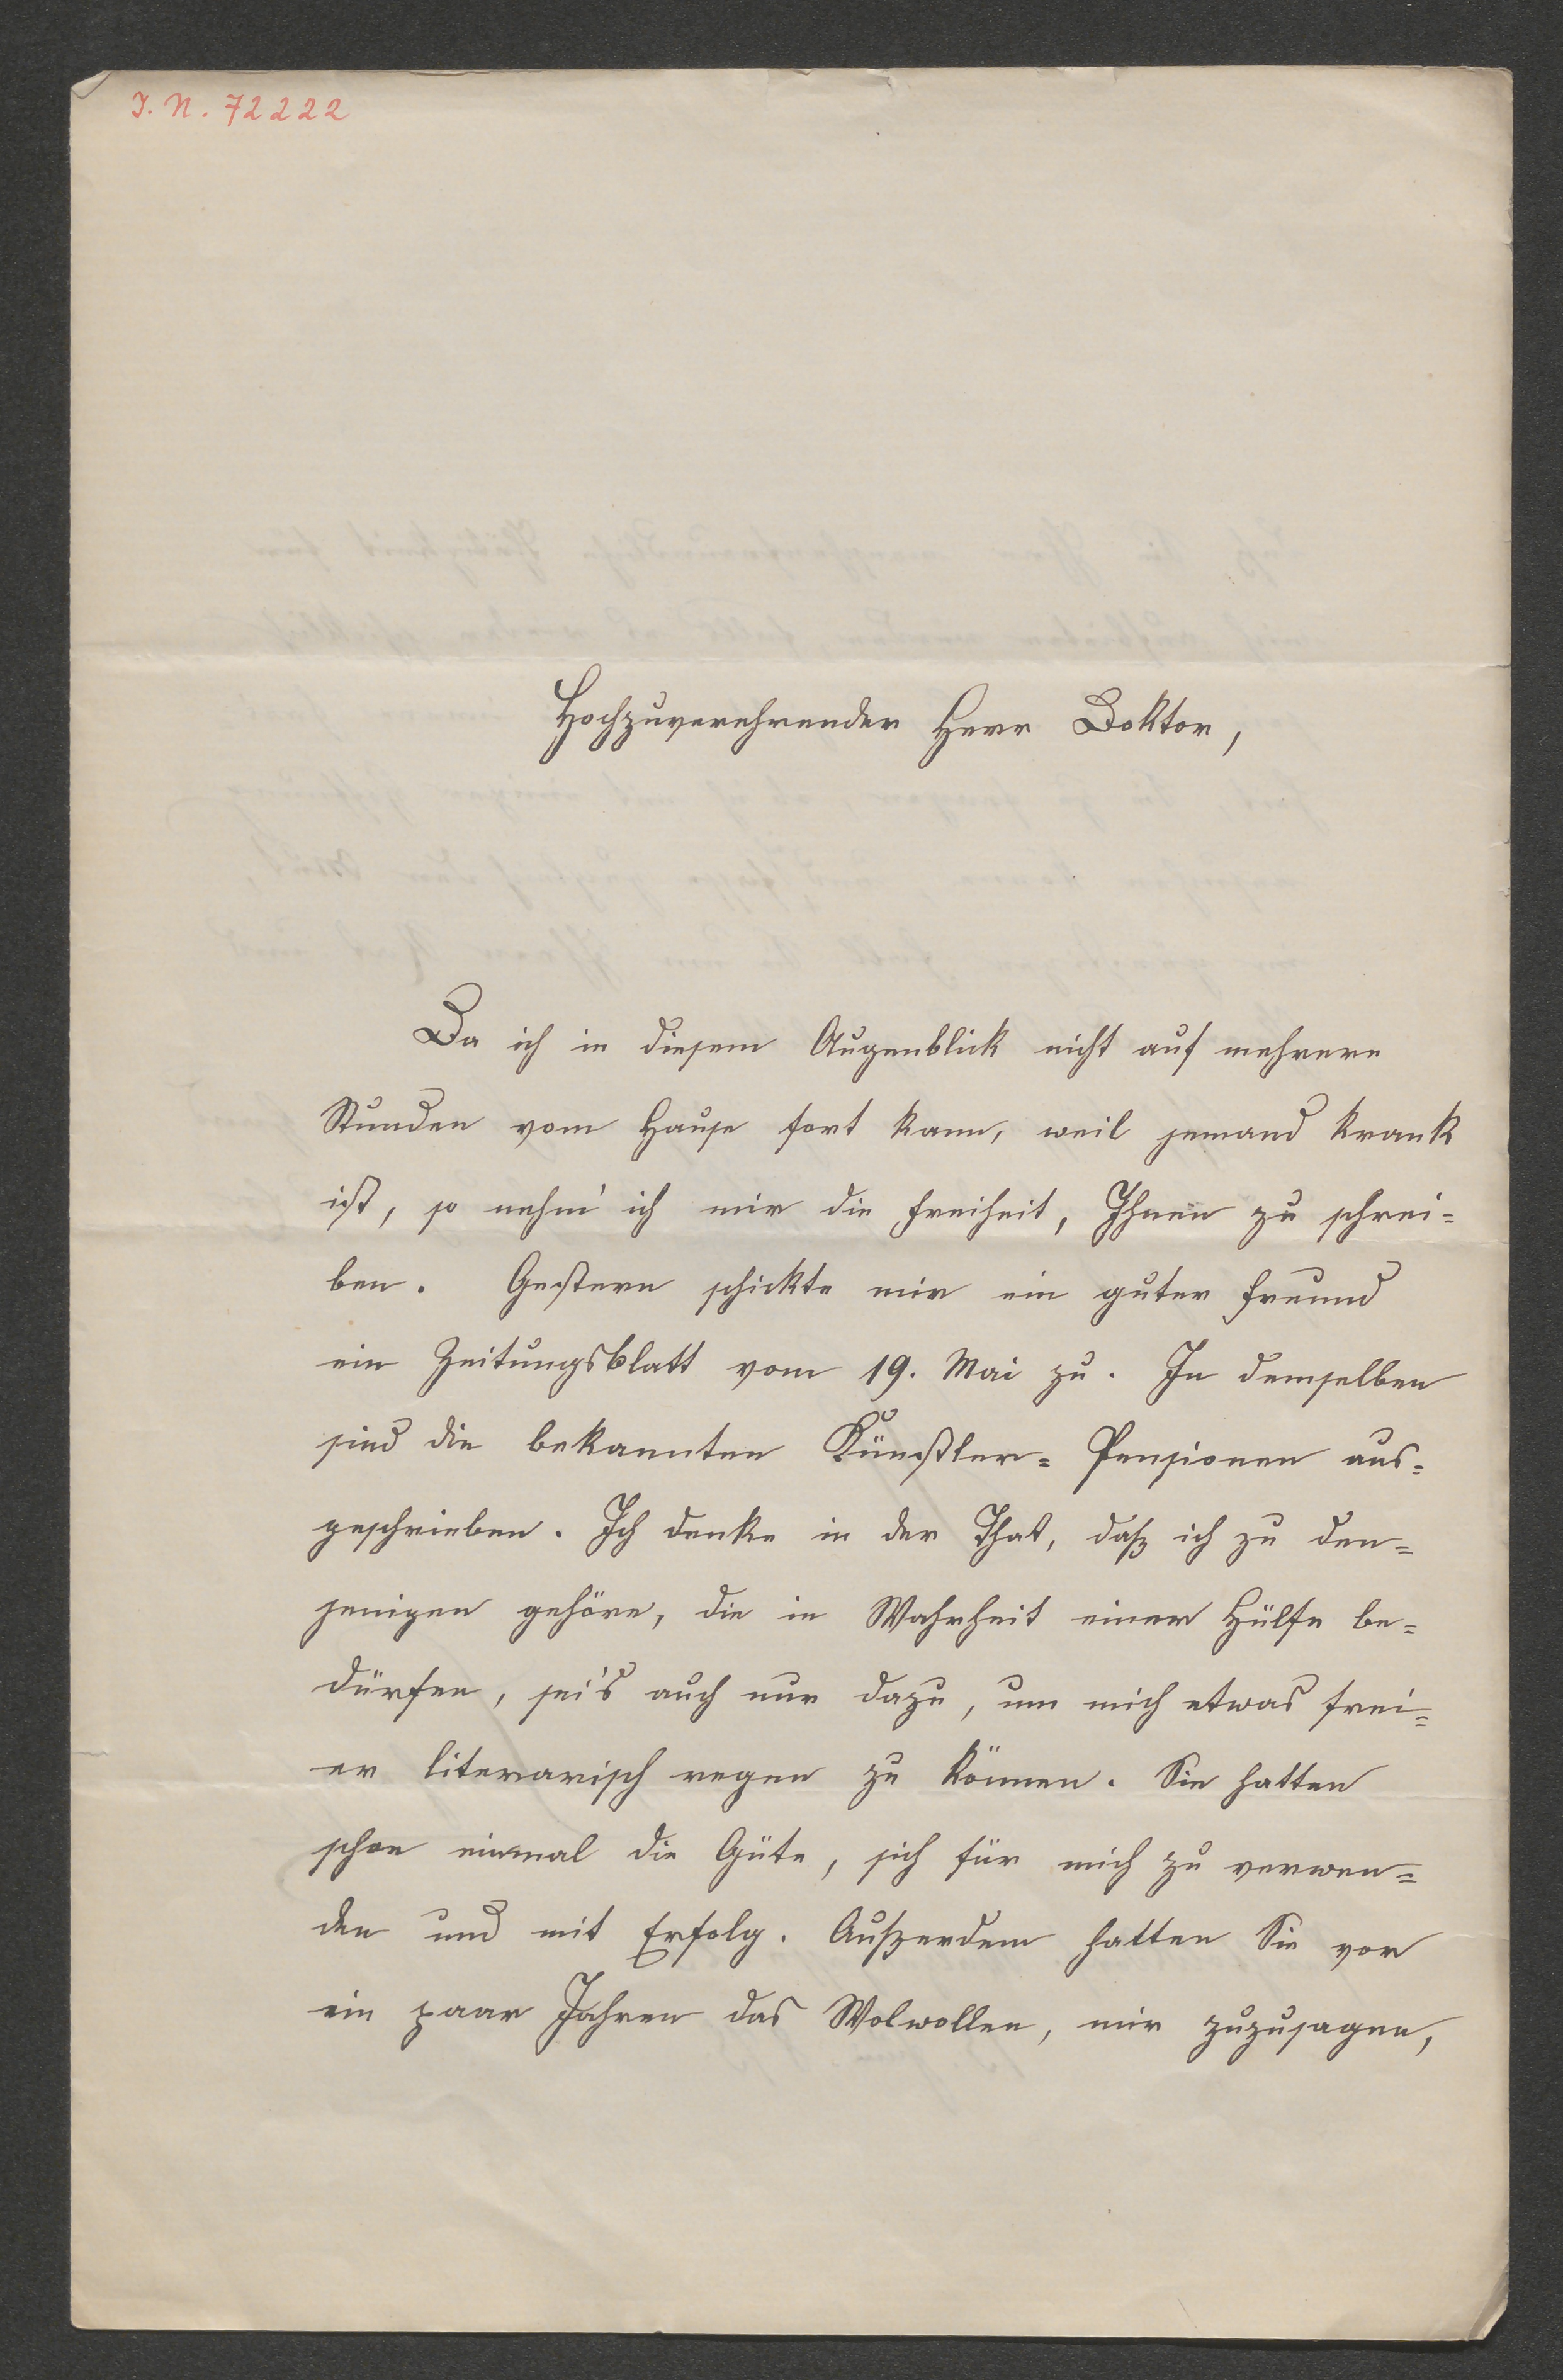 I. N. 72222
Hochzuverehrender Herr Doktor,
Da ich in diesem Augenblick nicht auf mehrere
Stunden vom Hause fort kann, weil jemand krank
ist, so nehm' ich mir die Freiheit, Ihnen zu schrei=
ben. Gestern schickte mir ein guter Freund
ein Zeitungsblatt vom 19. Mai zu. In demselben
sind die bekannten Künstler= Pensionen aus=
geschrieben. Ich denke in der That, daß ich zu den=
jenigen gehöre, die in Wahrheit einer Hülfe be=
dürfen, sei's auch nur dazu, um mich etwas frei=
er literarisch regen zu können. Sie hatten
schon einmal die Güte, sich für mich zu verwen=
den und mit Erfolg. Außerdem hatten Sie vor
ein paar Jahren das Wolwollen, mir zuzusagen,